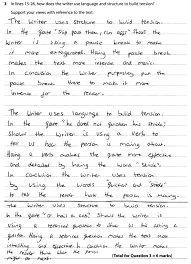 3 In lines 15-26, how does the writer use language and structure to build tension?
Support your views with reference to the text.
The writer uses structure to build tension.
In the quote "Slip pass then, run eggs" Shows the
writer is using a pause break to make
it more Having the pause break
makes the text more intense and manic.
In conclusion the writer purposley put the
pause break there to make it more
tense.
The writer uses language to build tension.
In the quote "he does not quicken his stride"
Shows the writer is using a verb to
tell us how the person is moving about.
Having a verb makes the quote more effective
and detailed by using the word "stride".
In conclusion the writer uses tension
by using the words quicken and stride
to tell the reader how the person is moving.
The writer uses structure to build tension.
In the quote Shows the writer is
using a question to show us
a question makes the text more
and effective. In conclusion the writer makes
the reader think that the person
(Total for Question 3 = 6 marks)